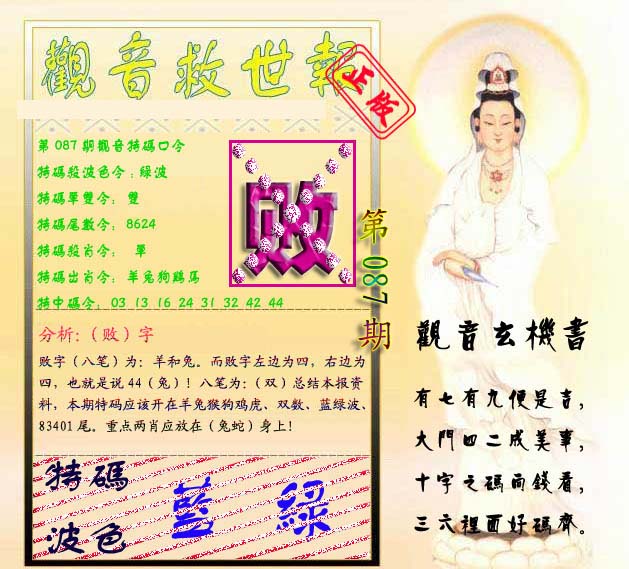 觀音救世報
正版
第087期觀音特碼口令
特碼殺波色令：綠波
特碼單雙令： 雙
特碼尾數令： 8624
特碼殺肖令： 單
特碼出肖令： 羊兔狗鷄馬
特中碼令： 03 13 16 24 31 32 42 44
败
第087期
分析:（败）字
败字（八笔）为：羊和兔。而败字左边为四，右边为
四，也就是说44（兔）！八笔为：（双）总结本报资
料，本期特码应该开在羊兔猴狗鸡虎、双数、蓝绿波、
83401尾。重点两肖应放在（兔蛇）身上！
特碼
波色
藍 綠
觀音玄機書
有七有九便是吉，
大門四二成美事，
十字之碼向錢看，
三六裡面好碼齊。